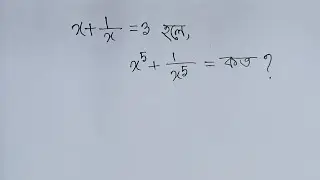 x + 1/x = 3 হলে,
x⁵ + 1/x⁵ = কত ?